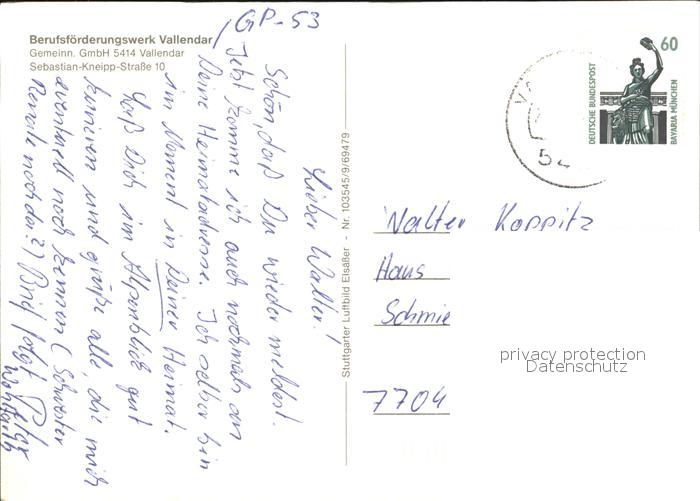 Berufsförderungswerk Vallendar
Gemeinn. GmbH 5414 Vallendar
Sebastian-Kneipp-Straße 10
GP-53
Lieber Walter!
Schön, daß Du wieder meldest.
Jetzt komme ich auch nochmals an
Deine Heimatadresse. Ich selber bin
im Moment in Deiner Heimat.
Laß Dich im Alpenblick gut
kurieren und grüße alle die mich
eventuell noch kennen (Schwester
Renate noch da?) Brief folgt Peter
Stuttgarter Luftbild Elsäßer - Nr. 103545/9/69479
60
DEUTSCHE BUNDESPOST
BAYARIA MÜNCHEN
54
Walter Koppitz
Haus
Schmie
7704
privacy protection
Datenschutz